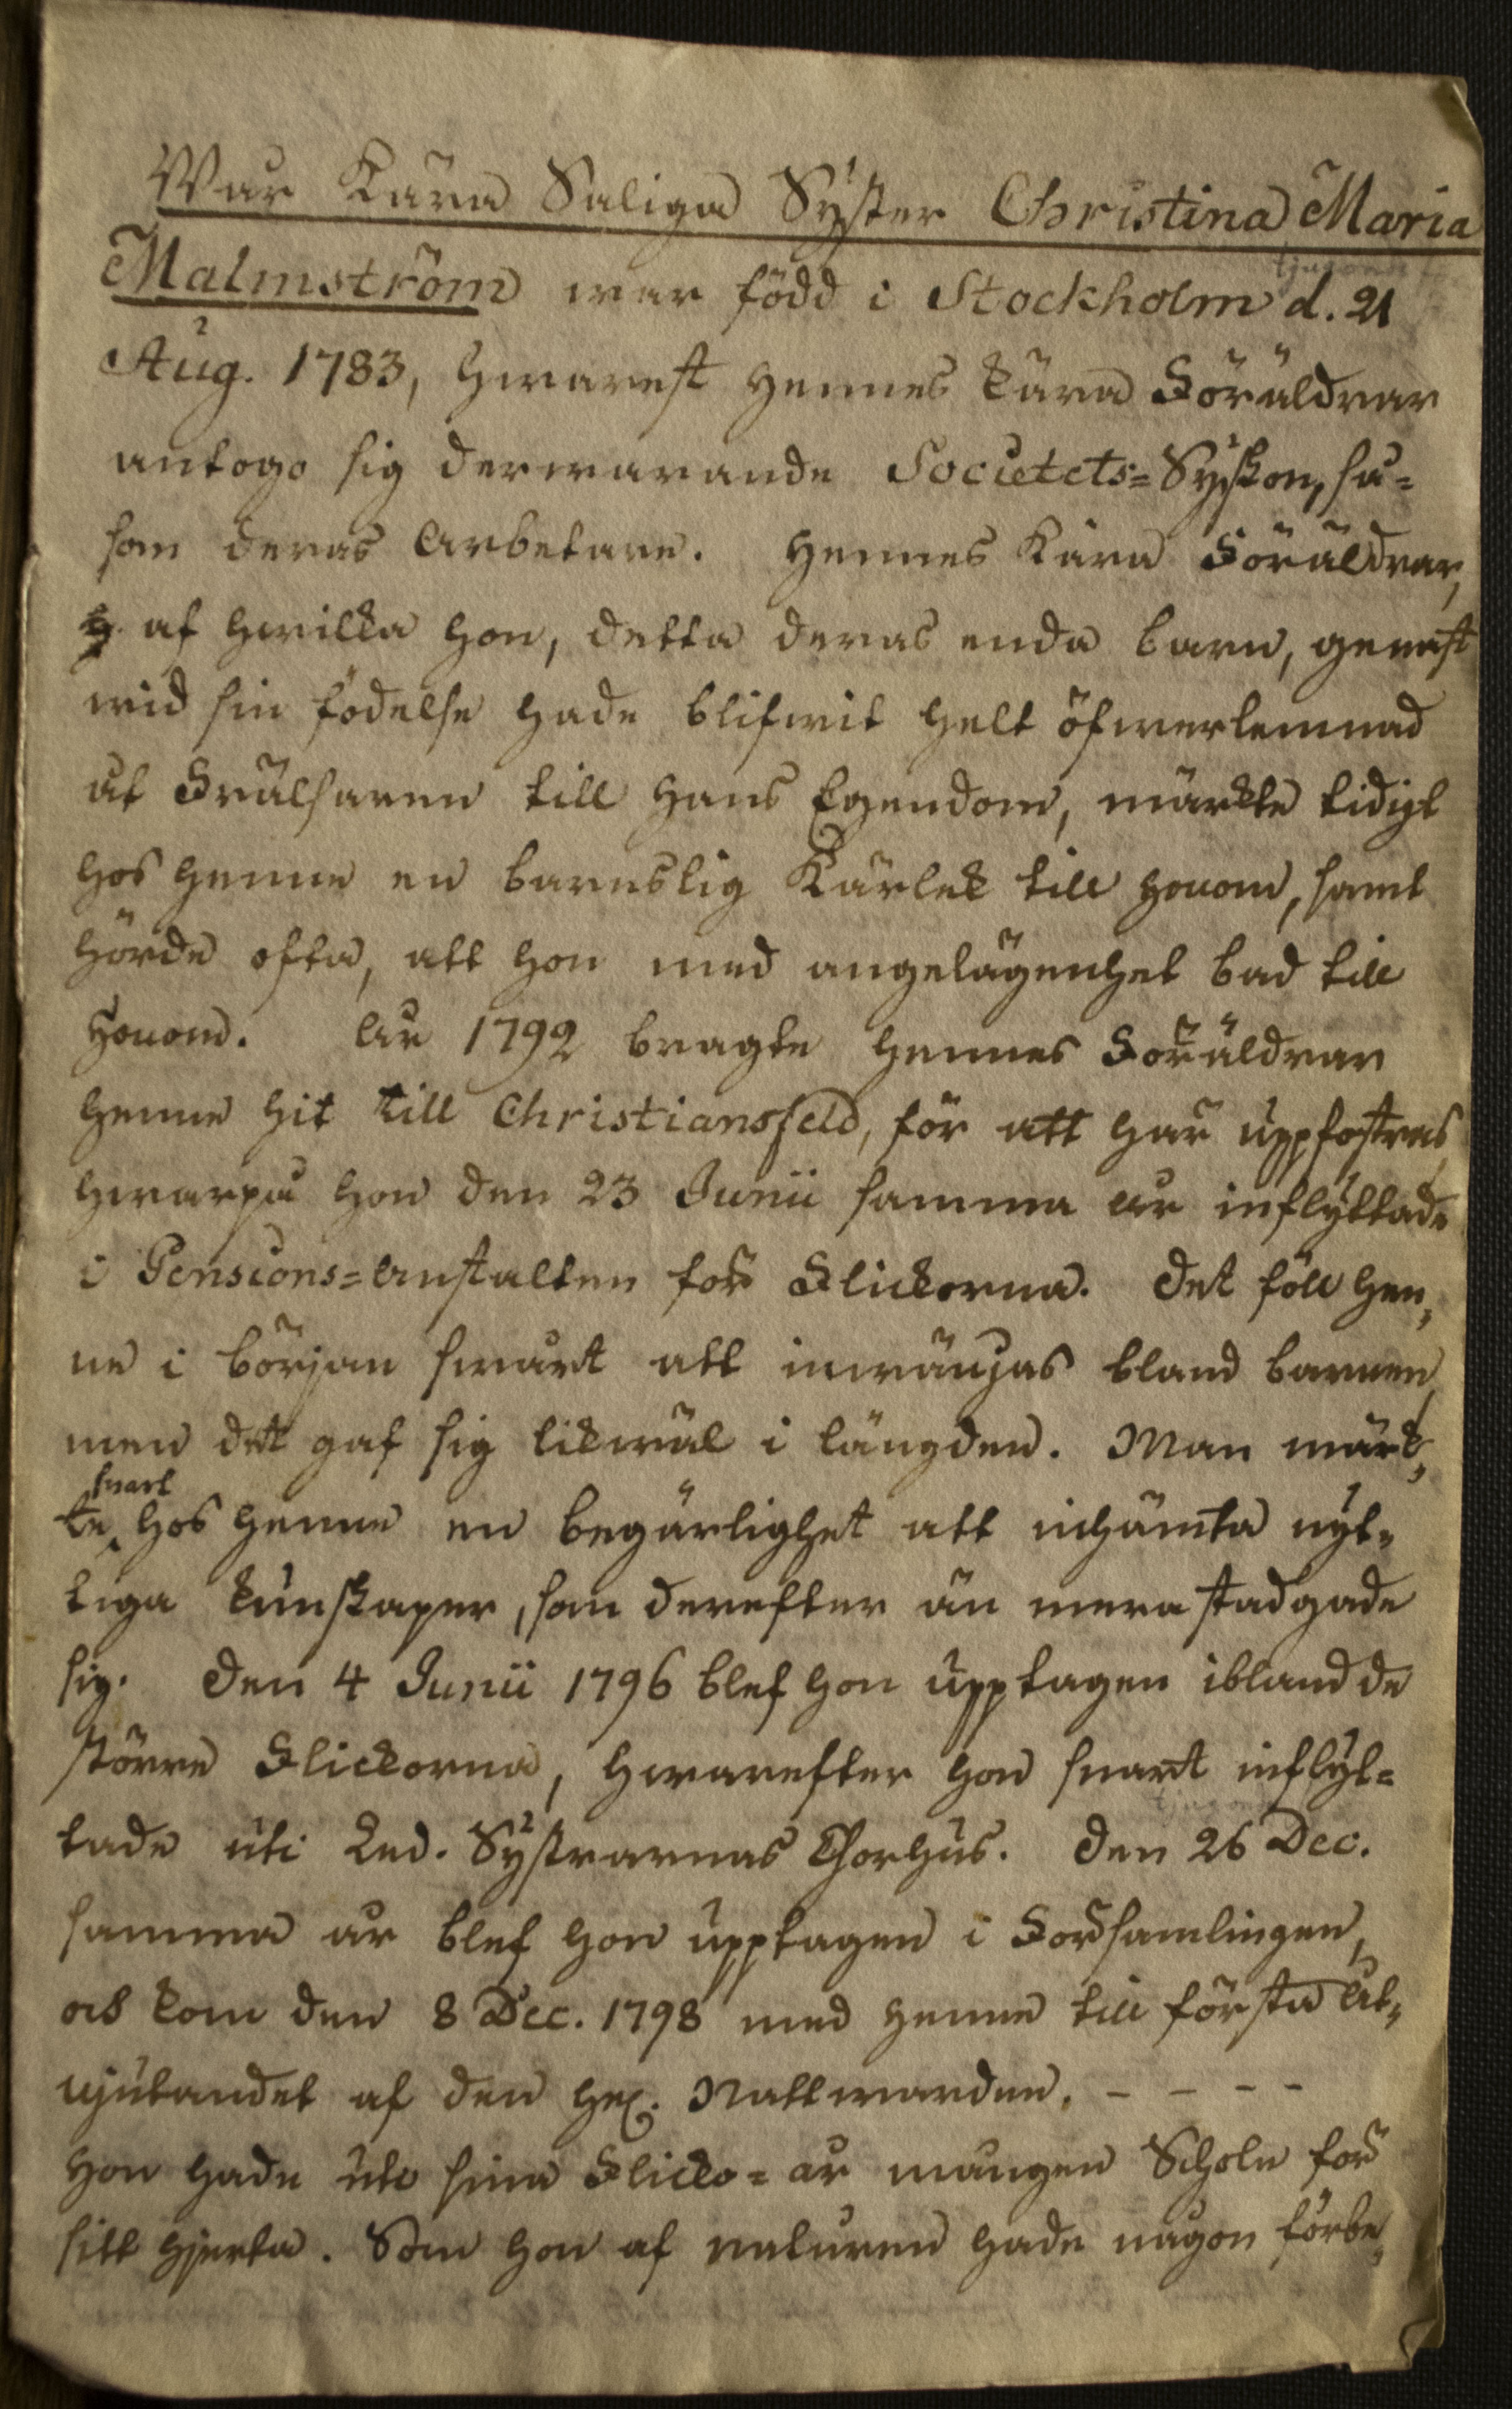 Wår Kära Saliga Syster Christina Maria
Malmström war född i Stockholm d. 21
Aug. 1783, hwarest Hennes kära Föräldrar
antogo sig derwarande Societets=Syskon, så=
som deras Arbetare. Hennes Kära Föräldrar,
af hwilka hon, detta deras enda barn, genast
wid sin födelse hade blifwit helt öfwerlemnad
åt Frälsaren till Hans Egendom, märkte tidigt
hos Henne en barnslig Kärlek till Honom, samt
hörde ofta, att hon med angelägenhet bad till
Honom. År 1792 bragte Hennes Föräldrar
Henne hit till Christiansfeld, för att här uppfostras,
hwarpå hon den 23 Junii samma år inflyttade
i Pensions=Anstalten för Flickorna. Det föll Hen=
ne i början swårt att inwänjas bland barnen,
men det gaf sig likwäl i längden. Man märk=
snart
te hos Henne en begärlighet att inhämta nyt=
tiga kunskaper, som derefter än mera stadgade
sig. Den 4 Junii 1796 blef hon upptagen ibland de
större Flickorna, hwarefter hon snart inflyt=
tade uti Led. Systrarnas Chorhus. Den 26 Dec.
samma år blef hon upptagen i Församlingen,
och kom den 8 Dec. 1798 med Henne till första åt=
njutandet af den Hel. Nattwarden. - - - -
Hon hade uti sina Flicko=år mången Schola för
sitt Hjerta. Som hon af naturen hade någon förbe=